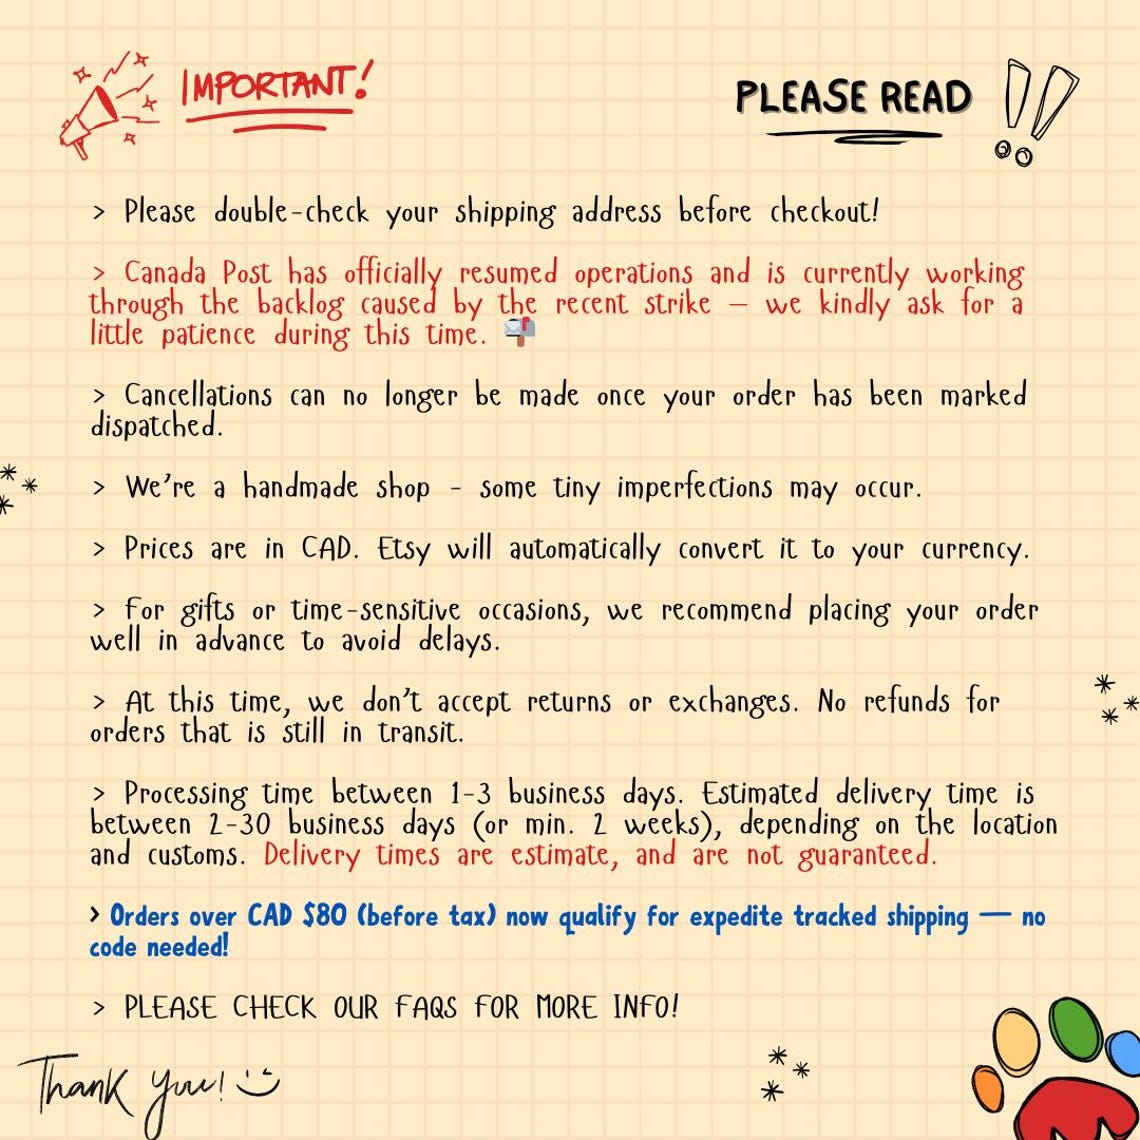 IMPORTANT!
PLEASE READ
> Please double-check your shipping address before checkout!
> Canada Post has officially resumed operations and is currently working
through the backlog caused by the recent strike – we kindly ask for a
little patience during this time. 📬
> Cancellations can no longer be made once your order has been marked
dispatched.
> We're a handmade shop - some tiny imperfections may occur.
> Prices are in CAD. Etsy will automatically convert it to your currency.
> For gifts or time-sensitive occasions, we recommend placing your order
well in advance to avoid delays.
> At this time, we don't accept returns or exchanges. No refunds for
orders that is still in transit.
> Processing time between 1-3 business days. Estimated delivery time is
between 2-30 business days (or min. 2 weeks), depending on the location
and customs. Delivery times are estimate, and are not guaranteed.
> Orders over CAD $80 (before tax) now qualify for expedite tracked shipping — no
code needed!
> PLEASE CHECK OUR FAQS FOR MORE INFO!
Thank you!